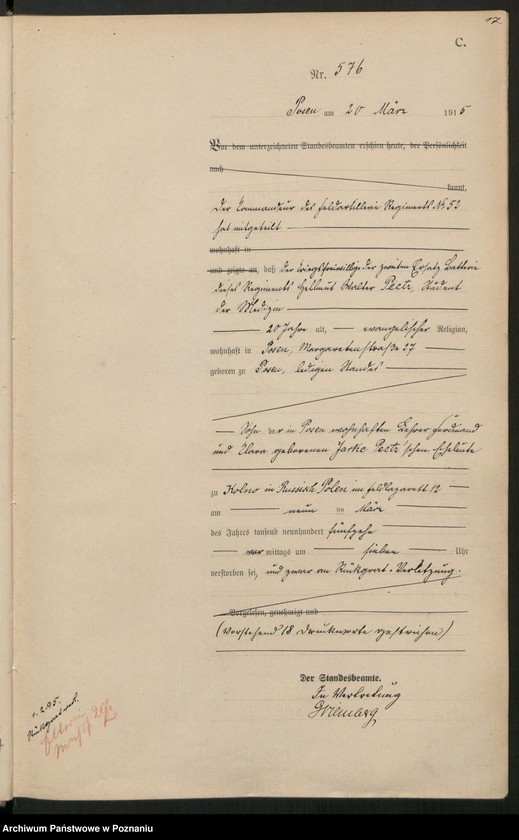 17
C.
Nr. 576
Posen am 20 März 1915
Vor dem unterzeichneten Standesbeamten erschien heute, der Persönlichkeit
nach
kannt,
der Commandeur des Feldartillerie Regiments No 52
hat mitgeteilt
wohnhaft in
und zeigte an, daß der Kriegsfreiwillige der zweiten Ersatz Batterie
dieses Regiments Hellmut Walter Peetz, Student
der Medizin
20 Jahre alt, evangelischer Religion,
wohnhaft in Posen, Margaretenstraße 27
geboren zu Posen, ledigen Standes
Sohn der in Posen wohnhaften Lehrer Ferdinand
und Clara geborenen Jaske Peetz'schen Eheleute
zu Kolno in Russisch Polen im Feldlazarett 12
am neun ten März
des Jahres tausend neunhundert fünfzehn
vor mittags um sieben Uhr
verstorben sei, und zwar an Rückgrat-Verletzung.
Vorgelesen, genehmigt und
(Vorstehend 18 Druckworte gestrichen)
Der Standesbeamte.
In Vertretung
1.2.95.
Archiwum Państwowe w Poznaniu